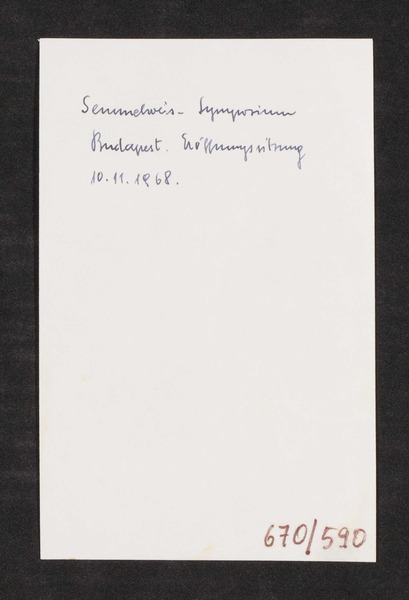 Semmelweis - Symposium
Budapest. Eröffnungssitzung
10.11.1968.
670/590